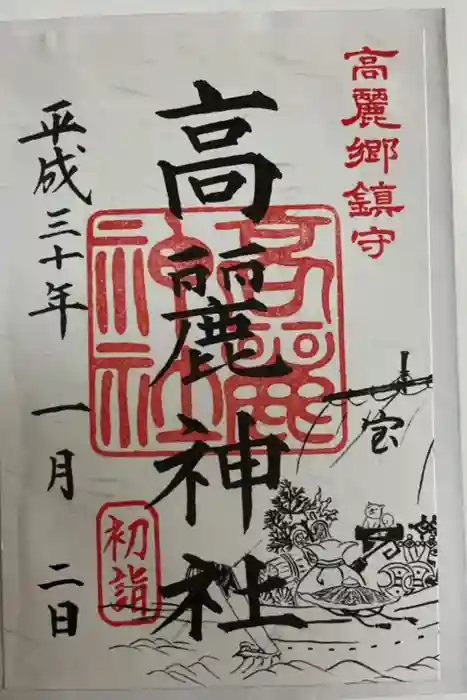 高麗郷鎮守
高麗神社
高麗神社
平成三十年 一月 二日
初詣
宝